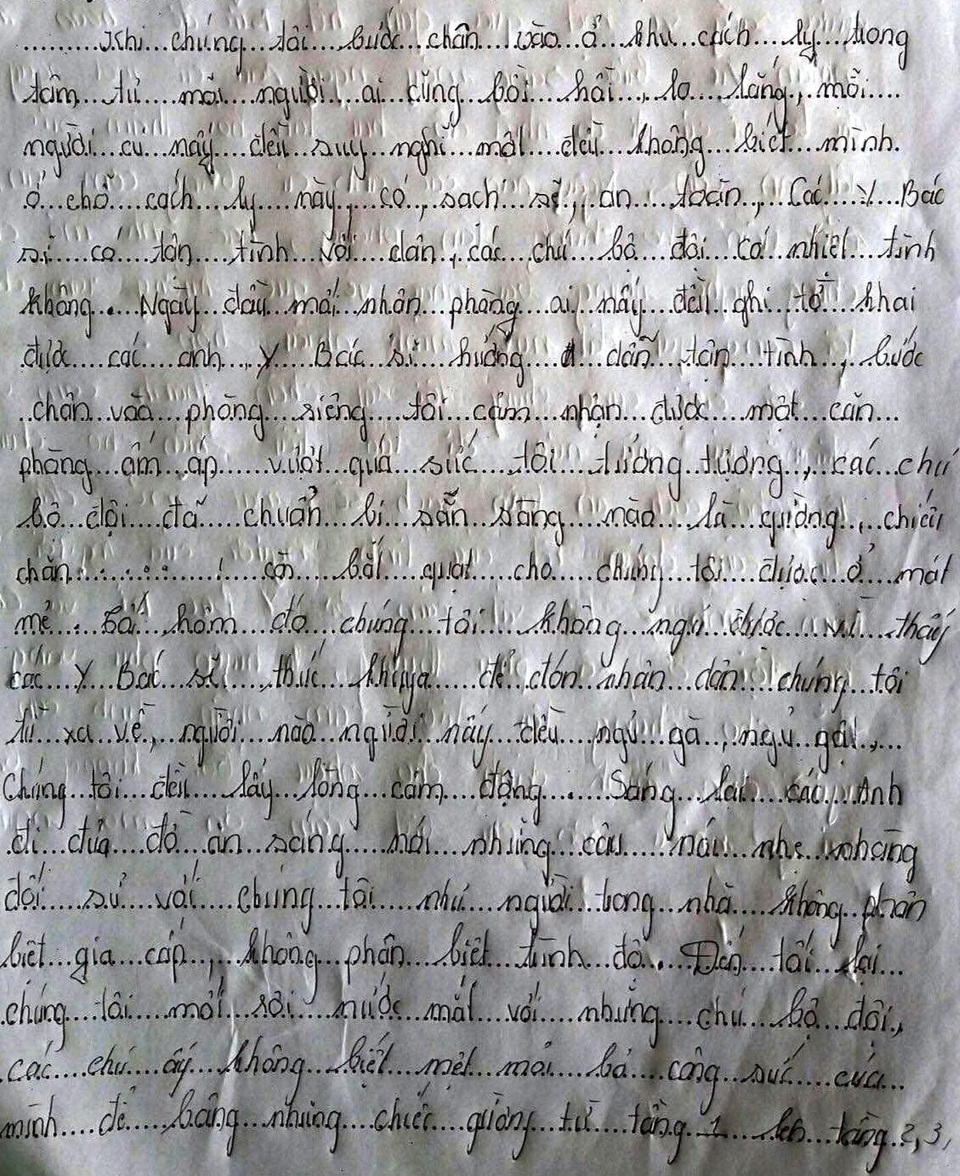 ..........Khi...chúng...tôi...bước...chân...vào...ở...khu...cách...ly...trong
tâm...tư...mỗi...người...ai...cũng...bồi...hồi..,..lo....lắng,..mỗi....
người...cu...nấy....đều...suy...nghĩ...một...điều...không...biết...mình.
ở...chỗ...cách...ly...này,...có..,sạch...sẽ,..an....toàn..,..Các...Y...Bác
sĩ...có...tận...tình...với...dân..,các...chú...bộ...đội...có...nhiệt...tình
không...Ngày...đầu...mới...nhận...phòng...ai...nấy...đều...ghi...tờ...khai
được...các...anh...Y...Bác...sĩ...hướng...dẫn...tận...tình..,..bước
..chân...vào...phòng...riêng...tôi...cảm...nhận...được...một...căn...
phòng...ấm...áp......vượt...quá...sức...tôi...tưởng...tượng..,..các...chú
bộ...đội...đã...chuẩn...bị...sẵn...sàng...nào...là...giường..,..chiếu
chăn............còn...bắt...quạt...cho...chúng...tôi...được...ở...mát
mẻ...Tối...hôm...đó...chúng...tôi...không...ngủ...được...vì...thấy
các...Y...Bác...sĩ...thức...khuya...để...đón...nhân...dân...chúng...tôi
từ...xa...về..,..người...nào...người...nấy...đều...ngủ...gà..,ngủ...gật..,...
Chúng...tôi...đều...lấy...lòng...cảm...động....Sáng...lại...các...Anh
đi...đưa...đồ...ăn...sáng...nói...những...câu...nói...nhẹ...nhàng
đối...sử...với...chúng...tôi...như...người...trong...nhà...không...phân
biệt...gia...cấp..,..không...phân...biệt...trình...độ...Đến...tối...lại...
chúng...tôi...mới...sôi...nước...mắt...với...những...chú...bộ...đội,
các...chú...ấy...không...biết...mệt...mỏi...bỏ...công...sức...của...
mình...để...bâng...những...chiếc...giường...từ...tầng...1...lên...tầng..2,3,